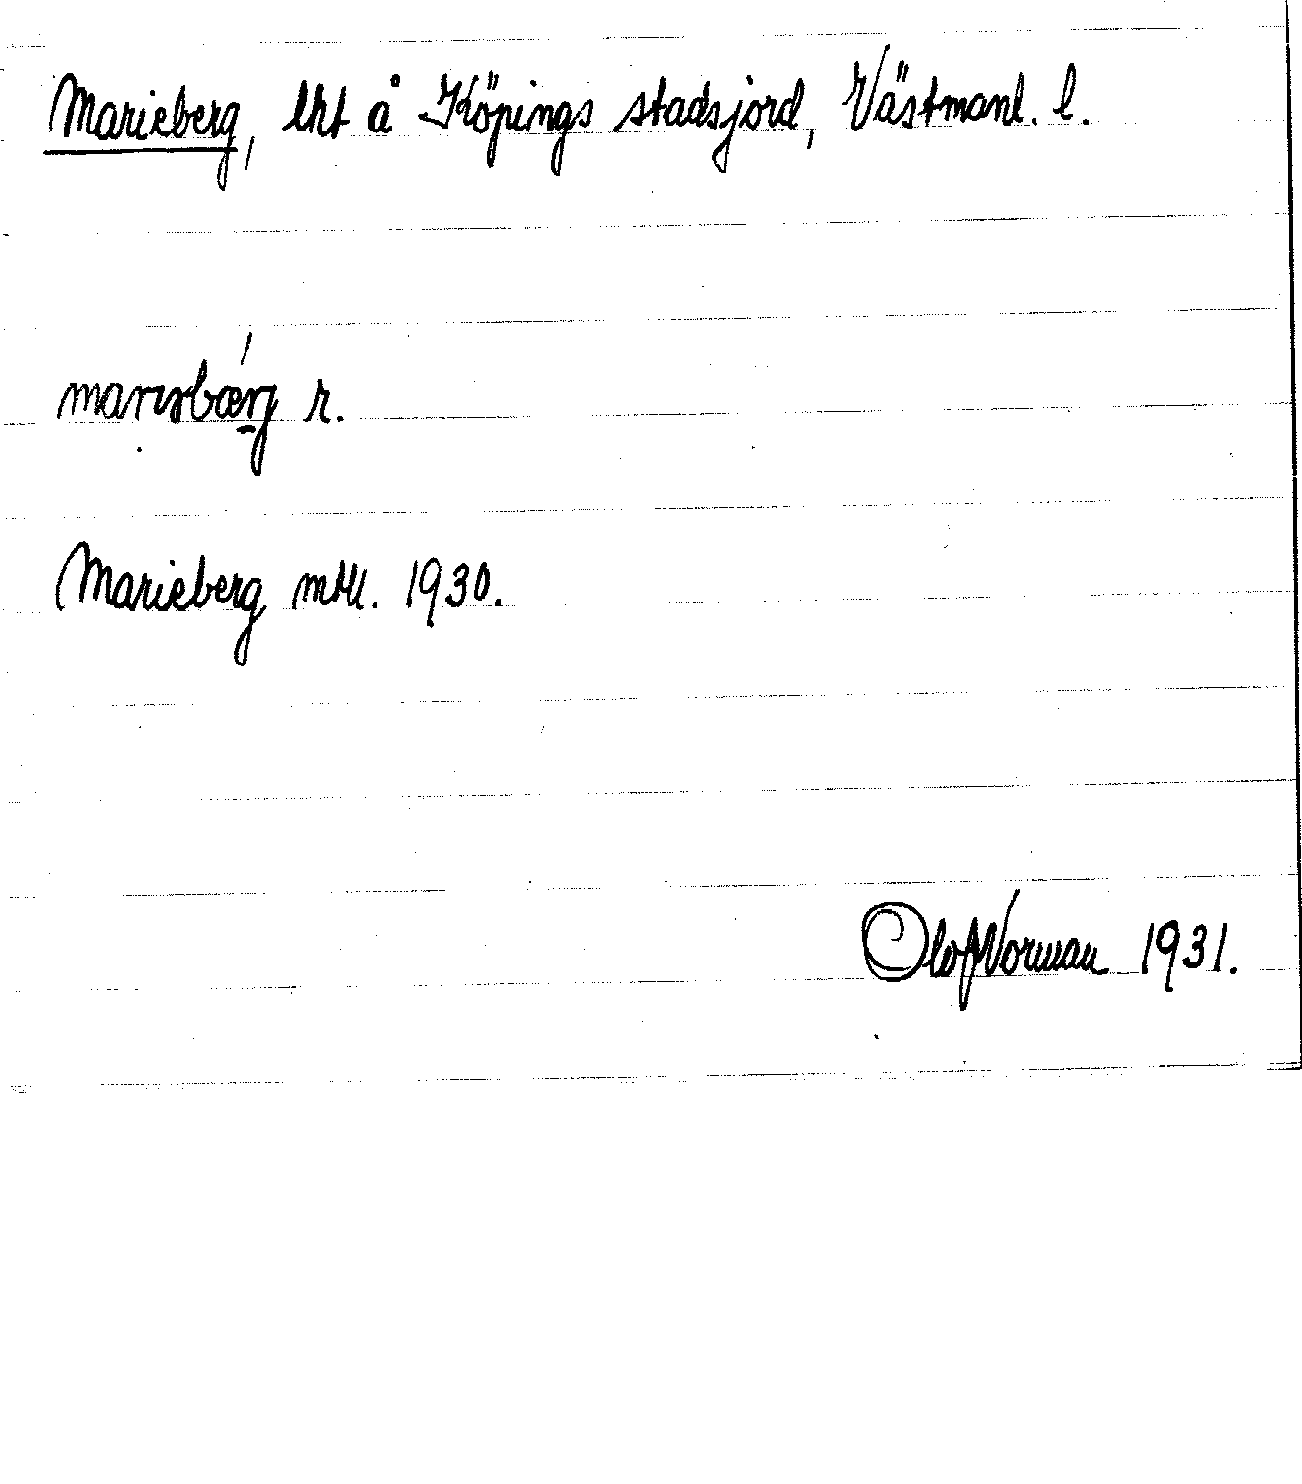 Marieberg, lht å Köpings stadsjord, Västmanl. l.
r.
Marieberg mtl. 1930.
Olof Norman 1931.